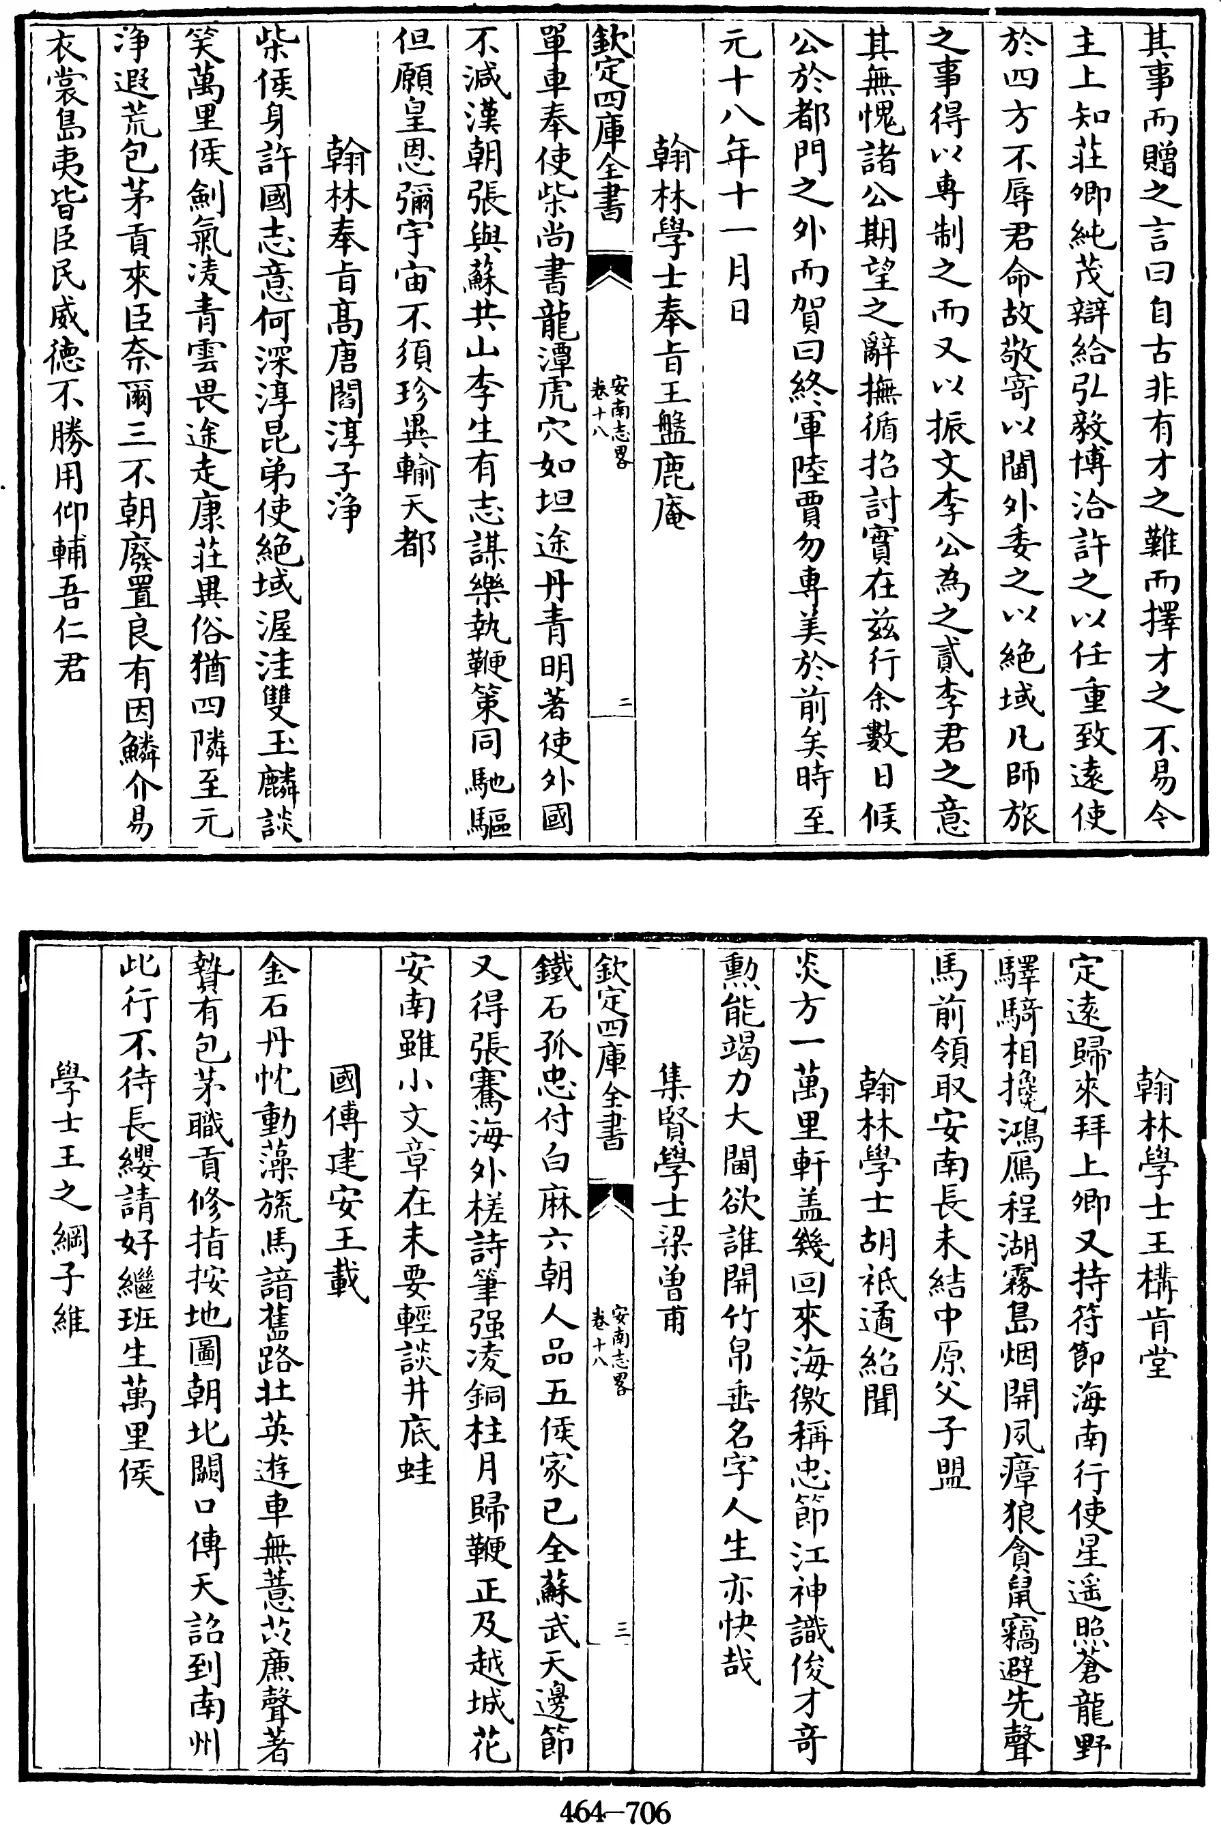 其事而贈之言曰自古非有才之難而擇才之不易今
主上知莊卿純茂辯給弘毅博洽許之以任重致遠使
於四方不辱君命故敬寄以閫外委之以絶域凡師旅
之事得以專制之而又以振文李公為之貳李君之意
其無愧諸公期望之辭撫循招討實在兹行余數日候
公於都門之外而賀曰終軍陸賈勿專美於前矣時至
元十八年十一月日
翰林學士奉旨王盤鹿庵
欽定四庫全書
安南志畧
卷十八
二
單車奉使柴尚書龍潭虎穴如坦途丹青明著使外國
不減漢朝張與蘇共山李生有志謀樂執鞭策同馳驅
但願皇恩彌宇宙不須珍異輸天都
翰林奉旨髙唐閻淳子浄
柴侯身許國志意何深淳昆弟使絶域渥洼雙玉麟談
笑萬里侯劍氣凌青雲畏途走康莊異俗猶四隣至元
浄遐荒包茅貢來臣奈爾三不朝廢置良有因鱗介易
衣裳島夷皆臣民威德不勝用仰輔吾仁君
翰林學士王構肯堂
定遠歸來拜上卿又持符節海南行使星遥照蒼龍野
驛騎相攙鴻鴈程湖霧島烟開夙瘴狼貪鼠竊避先聲
馬前領取安南長未結中原父子盟
翰林學士胡祇遹紹聞
炎方一萬里軒盖幾回來海徼稱忠節江神識俊才竒
勲能竭力大閫欲誰開竹帛垂名字人生亦快哉
集賢學士梁曽甫
欽定四庫全書
安南志畧
卷十八
三
鐵石孤忠付白麻六朝人品五侯家已全蘇武天邊節
又得張騫海外槎詩筆强凌銅柱月歸鞭正及越城花
安南雖小文章在未要輕談井底蛙
國傅建安王載
金石丹忱動藻旒馬諳舊路壮英遊車無薏苡亷聲著
贄有包茅職貢修指按地圖朝北闕口傳天詔到南州
此行不待長纓請好繼班生萬里侯
學士王之綱子維
464-706